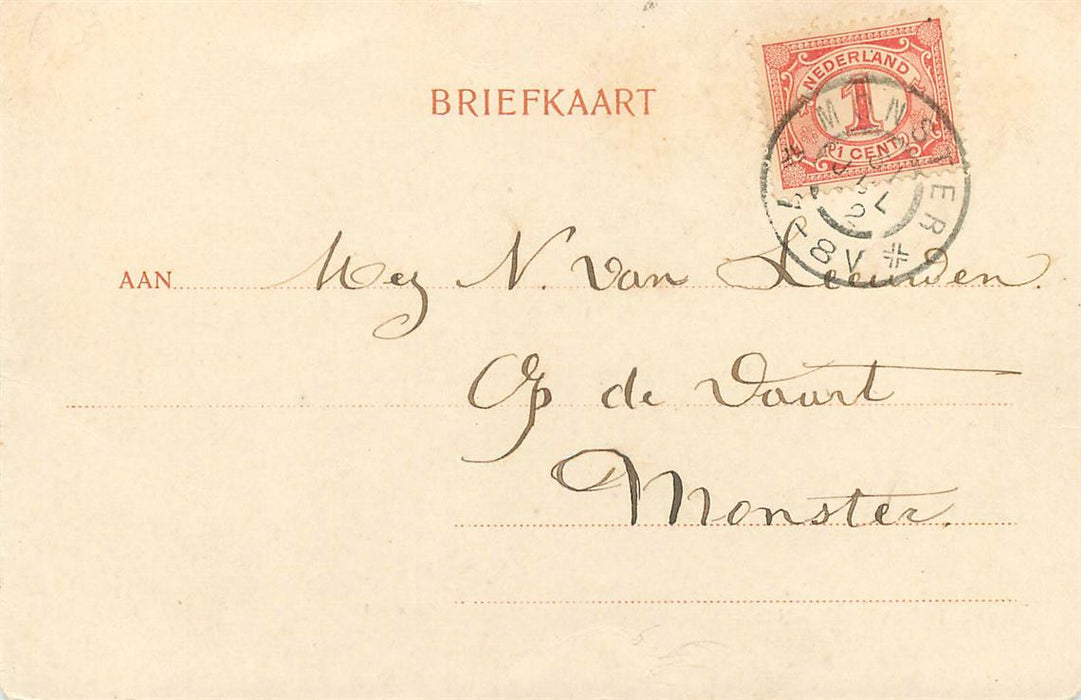 NEDERLAND
1
1 CENT
BRIEFKAART
MONSTER
8V
AAN Mej N. van Leeuwen.
Op de Vaart
Monster.